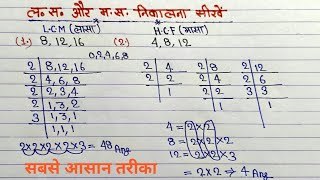 ल.स. और म.स. निकालना सीखें
L.C.M (लासा) * H.C.F (मासा)
(1.) 8, 12, 16 (2.) 4, 8, 12
0,2,4,6,8
2 | 8, 12, 16
2 | 4, 6, 8
2 | 2, 3, 4
2 | 1, 3, 2
3 | 1, 3, 1
1, 1, 1
2 | 4
2 | 2
1
2 | 8
2 | 4
2 | 2
1
2 | 12
2 | 6
3 | 3
1
2×2×2×2×3 = 48 Ans
4 = 2×2
8 = 2×2×2
12 = 2×2×3
= 2×2 ⇒ 4 Ans
सबसे आसान तरीका